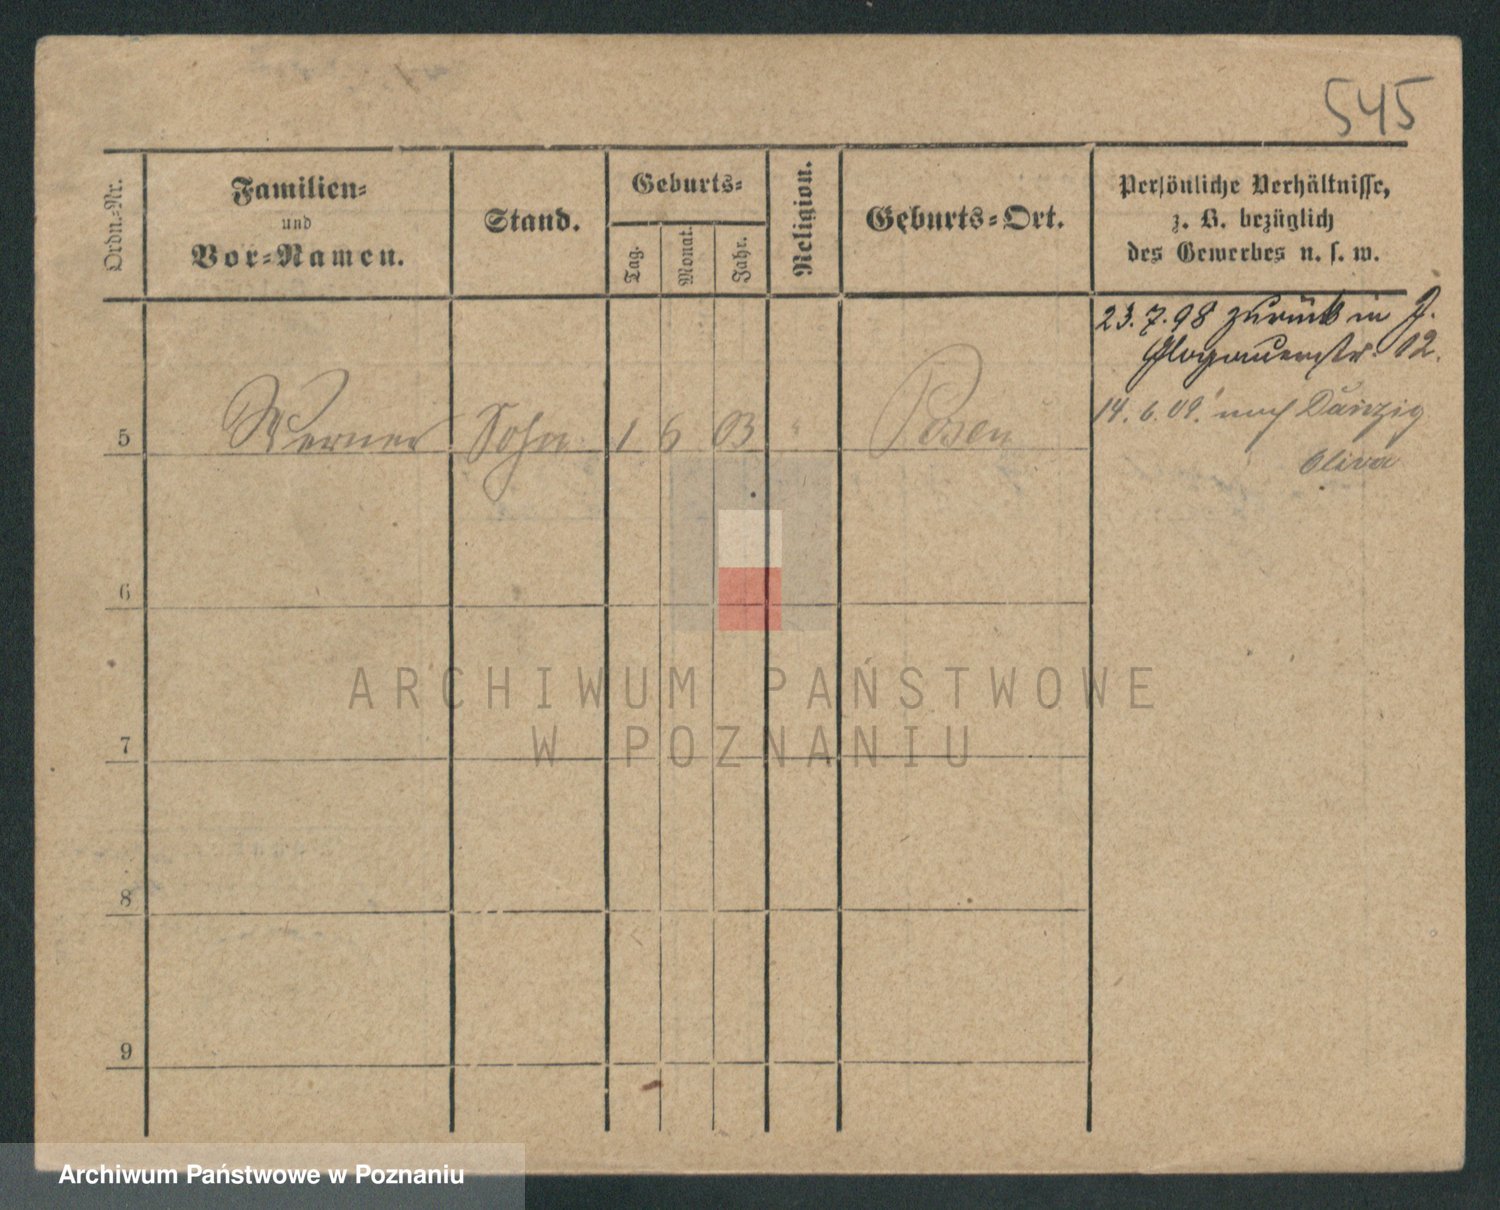 545
Ordn.-Nr.
Familien-
und
Vor-Namen.
Stand.
Geburts-
Tag.
Monat.
Jahr.
Religion.
Geburts-Ort.
Persönliche Verhältnisse,
z. B. bezüglich
des Gewerbes u. s. w.
23. 7. 98 zurück in J.
Glogauerstr. 12.
5 Werner Sohn 1 6 03 " Posen
14. 6. 09. nach Danzig
Oliva
6
7
8
9
ARCHIWUM PAŃSTWOWE
W POZNANIU
Archiwum Państwowe w Poznaniu